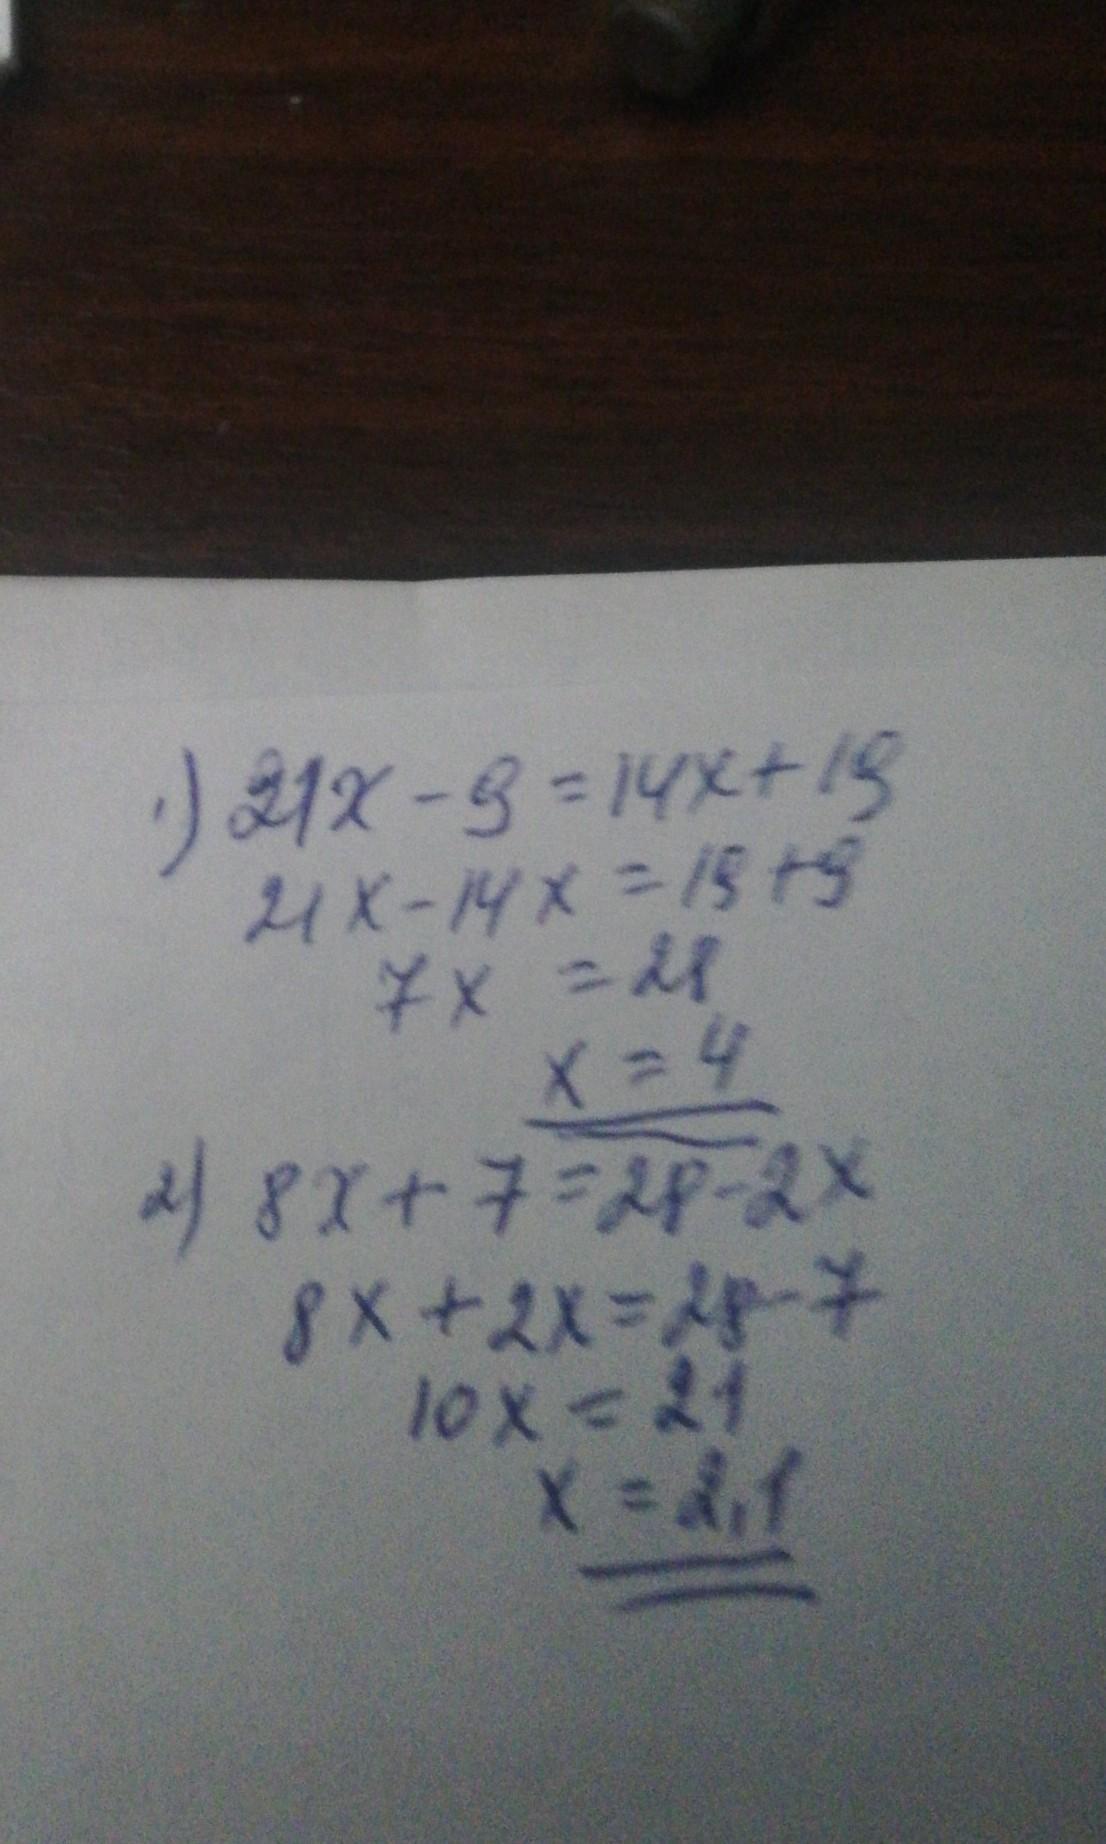 1) 21x - 9 = 14x + 19
21x - 14x = 19 + 9
7x = 28
x = 4
2) 8x + 7 = 28 - 2x
8x + 2x = 28 - 7
10x = 21
x = 2,1